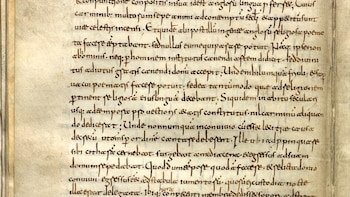 conpunctione compositis in sua id est anglorum lingua proferret. Cuius
carminibus multorum saepe animi ad contemptum saeculi et appetitum sunt
uitae caelestis accensi. Et quidem et alii post illum in gente anglorum religiosa poema
ta facere temptabant. sed nullus eum aequiparare potuit. Namque ipse non
ab hominibus neque per hominem institutus canendi artem didicit. sed diuini
tus adiutus gratis canendi donum accepit. Unde nihil umquam friuoli et super
uacui poematis facere potuit. sed ea tantummodo quae ad religionem
pertinent religiosam eius linguam decebant. Siquidem in habitu saeculari
usque ad tempora prouectioris aetatis constitutus nil carminum aliquando
didicerat. Unde nonnumquam in conuiuio cum esset laetitiae causa
decretum ut omnes per ordinem cantare deberent. Ille ubi adpropinquare
sibi citharam cernebat surgebat a media caena et egressus ad suam
domum repedabat. Quod dum tempore quodam faceret et relicta domu
conuiuii egressus esset ad stabula iumentorum quorum ei custodia nocte
illa erat delegata. ibique hora competenti membra dedisset sopori